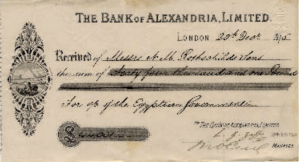 THE BANK OF ALEXANDRIA, LIMITED.
LONDON 20th Decr
Received of Messrs N. M. Rothschild & Sons
the sum of Forty four thousand and one Pounds
For a/c of the Egyptian Government
THE BANK OF ALEXANDRIA, LIMITED.
MANAGER